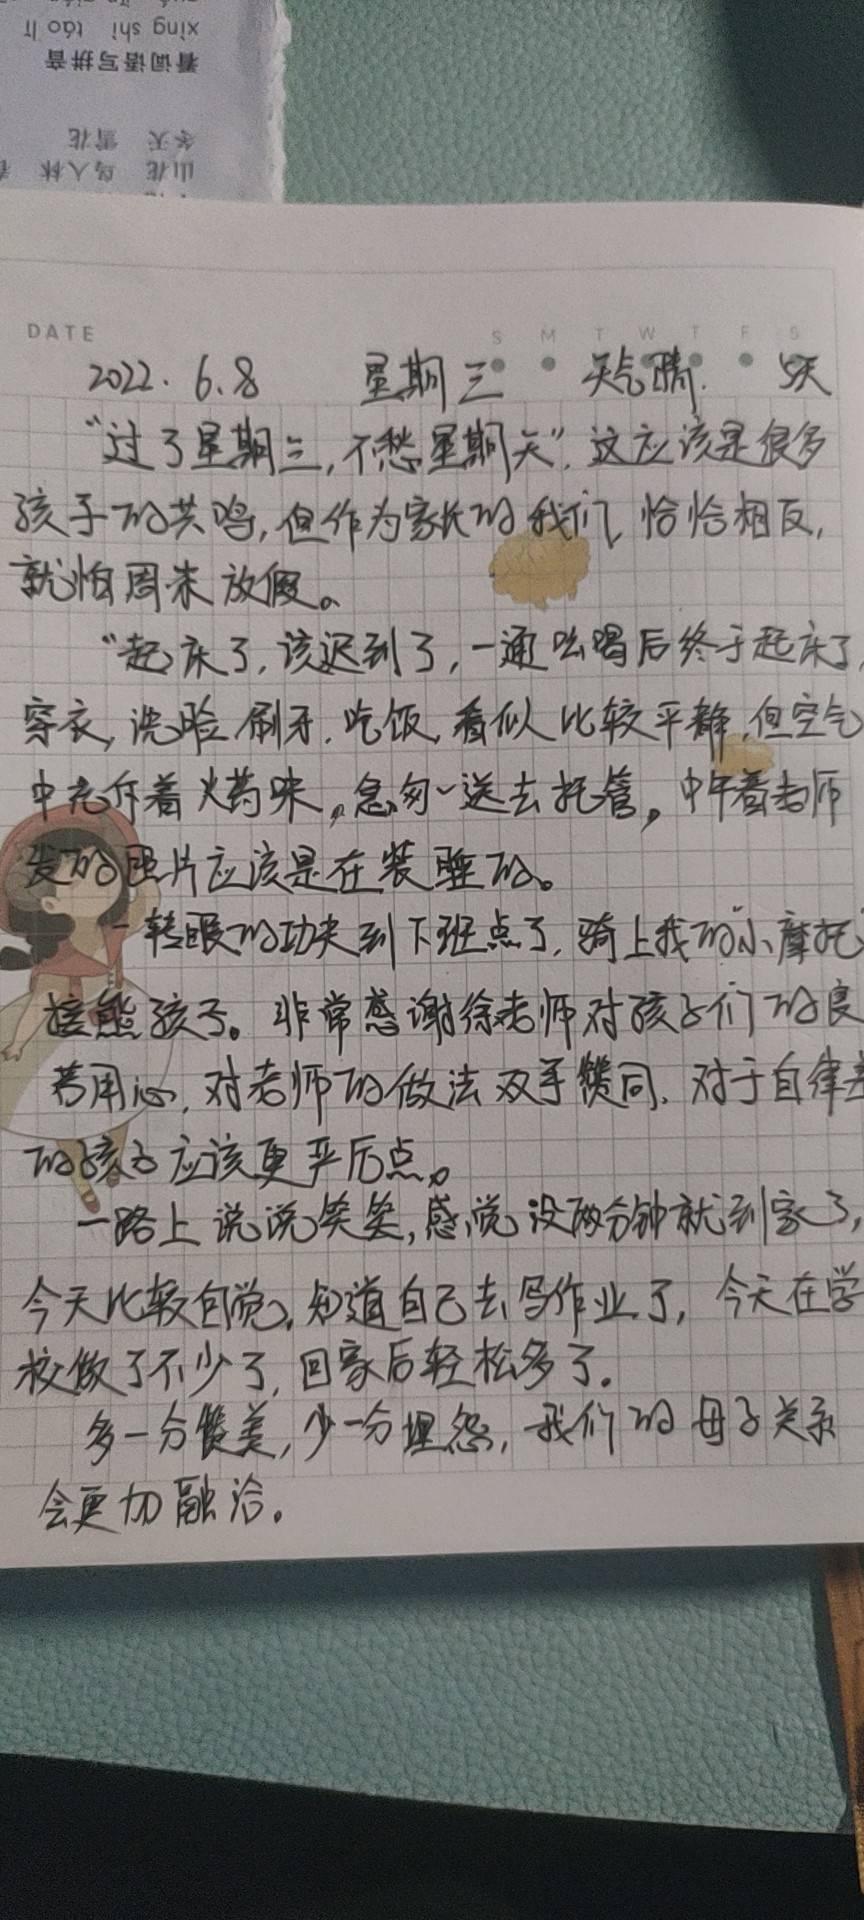 xìng shí táo lǐ
看词语写拼音
冬天 雪花
山花 鸟人林
DATE
S M T W T F S
2022.6.8 星期三 天气晴. 5天
“过了星期三,不愁星期天”,这应该是很多
孩子的共鸣,但作为家长的我们,恰恰相反,
就怕周末放假。
“起床了,该迟到了,一通吆喝后终于起床了,
穿衣,洗脸,刷牙,吃饭,看似比较平静,但空气
中充斥着火药味。急匆匆送去托管,中午看老师
发的照片应该是在装睡的。
一转眼的功夫到下班点了,骑上我的“小摩托”
接熊孩子。非常感谢徐老师对孩子们的良
苦用心,对老师的做法双手赞同,对于自律差
的孩子应该更严厉点。
一路上说说笑笑,感觉没两分钟就到家了,
今天比较自觉,知道自己去写作业了,今天在学
校做了不少了,回家后轻松多了.
多一分赞美,少一分埋怨,我们的母子关系
会更加融洽.